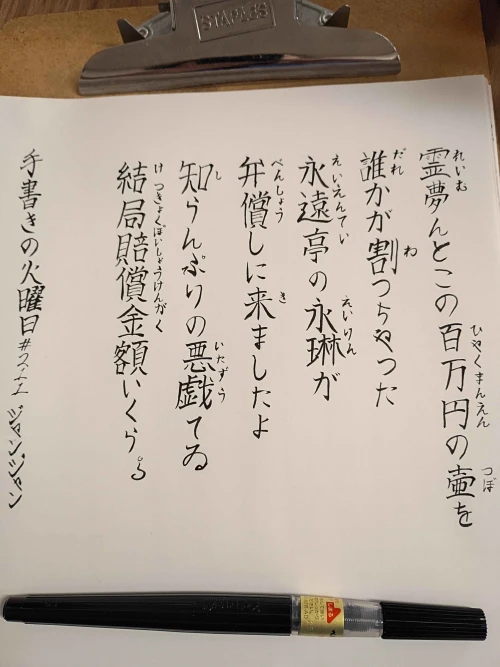 STAPLES
れいむ ひゃくまんえん つぼ
霊夢んとこの百万円の壷を
だれ わ
誰かが割っちゃった
えいえんてい えいりん
永遠亭の永琳が
べんしょう き
弁償しに来ましたよ
し いたずら
知らんぷりの悪戯てゐ
けっきょくばいしょうきんがく
結局賠償金額いくら
手書きの火曜日 ジャンジャン